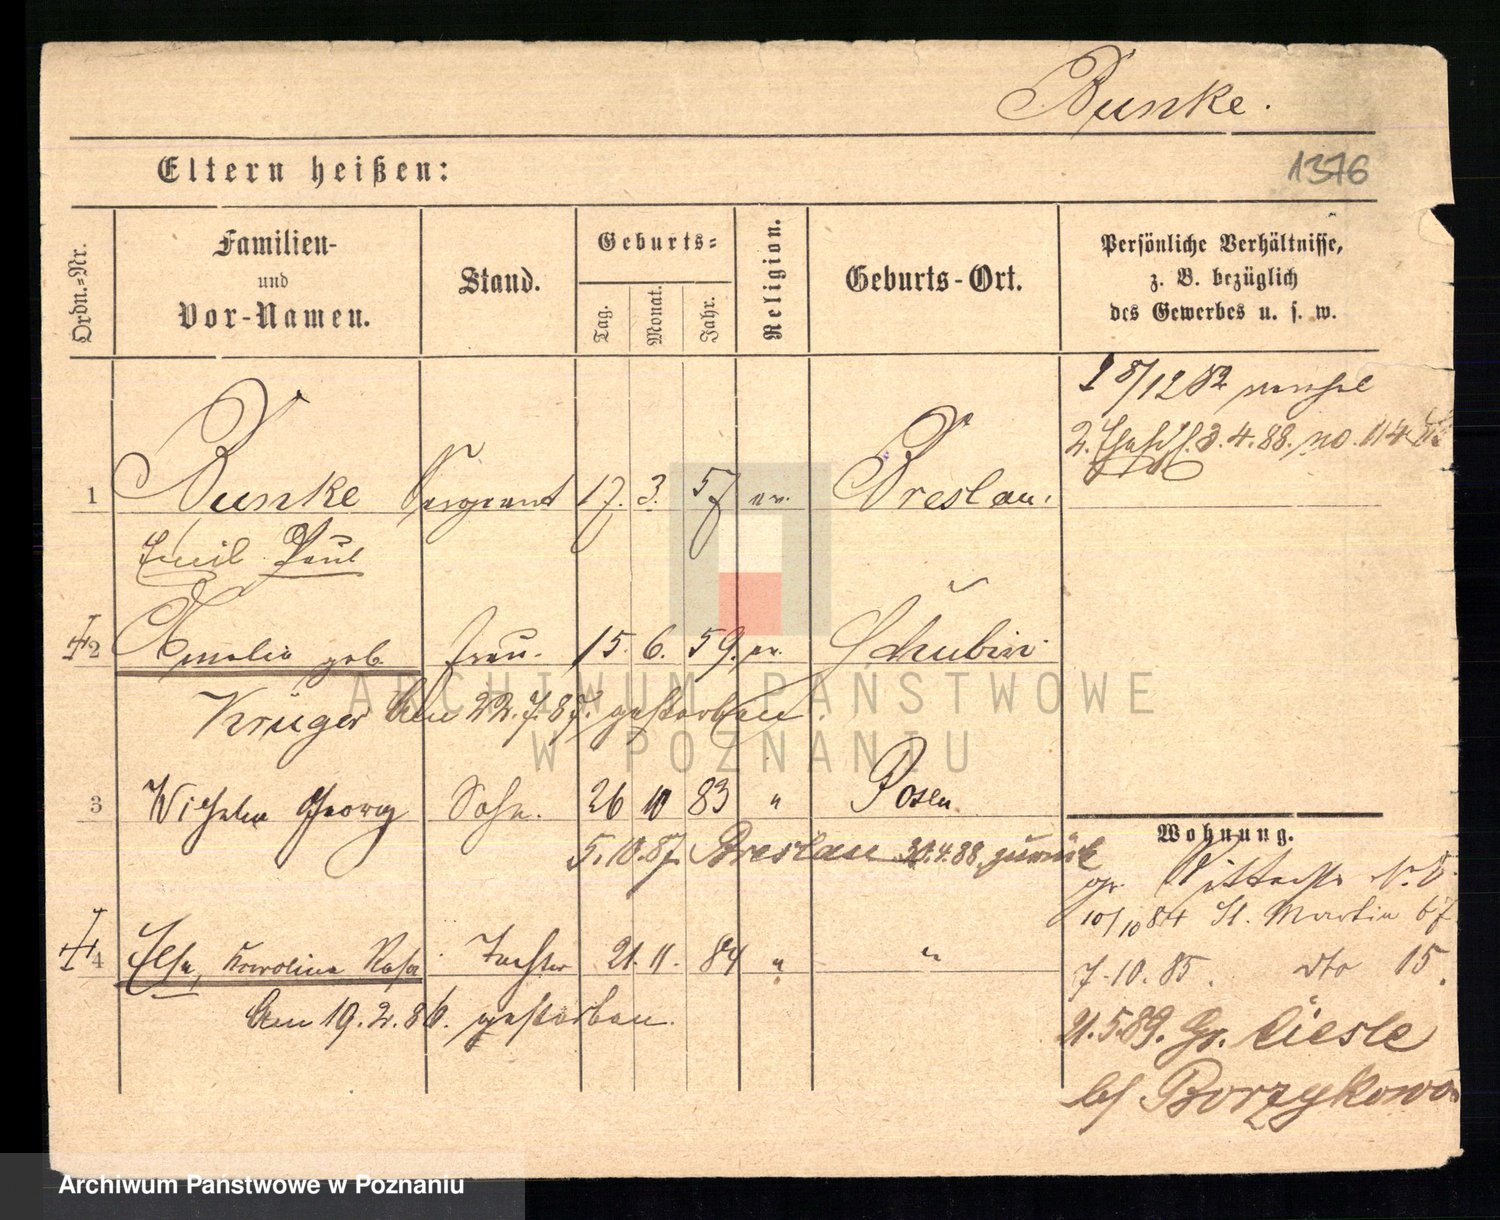 Bunke.
Eltern heißen:
1376
Ordn.=Nr.
Familien-
und
Vor-Namen.
Stand.
Geburts=
Tag.
Monat.
Jahr.
Religion.
Geburts-Ort.
Persönliche Verhältnisse,
z. B. bezüglich
des Gewerbes u. s. w.
8/12 82
2. 3.4.88. no. 114
1 Bunke Sergeant 17. 3. 57 ev. Breslau.
Emil Paul
2 Amalie geb. Frau. 15. 6. 59. ev. Schubin
Krüger Am 22.7.87. gestorben.
3 Wilhelm Georg Sohn. 26 10 83 " Posen
5.10.87. Breslau 30.4.88. zurück
4 Else, Karoline Rosa Tochter 21. 11. 84 " "
Am 19.2.86. gestorben.
Wohnung.
gr. Ritterstr. N. 8.
10/10 84 St. Martin 67
7.10.85. dto 15.
21.5.89. Gr. Ciesle
bei Borzykowo
ARCHIWUM PAŃSTWOWE
W POZNANIU
Archiwum Państwowe w Poznaniu